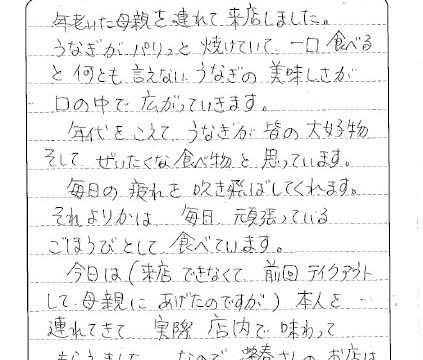 年老いた母親を連れて来店しました。
うなぎがパリッと焼けていて、一口食べる
と何とも言えないうなぎの美味しさが
口の中で広がっていきます。
年代をこえて、うなぎが皆の大好物
そして、ぜいたくな食べ物と思っています。
毎日の疲れを吹き飛ばしてくれます。
それよりかは毎日頑張っている
ごほうびとして食べています。
今日は(来店できなくて前回テイクアウト
して母親にあげたのですが)本人を
連れてきて実際店内で味わって
もらうました。なので、さんのお店は